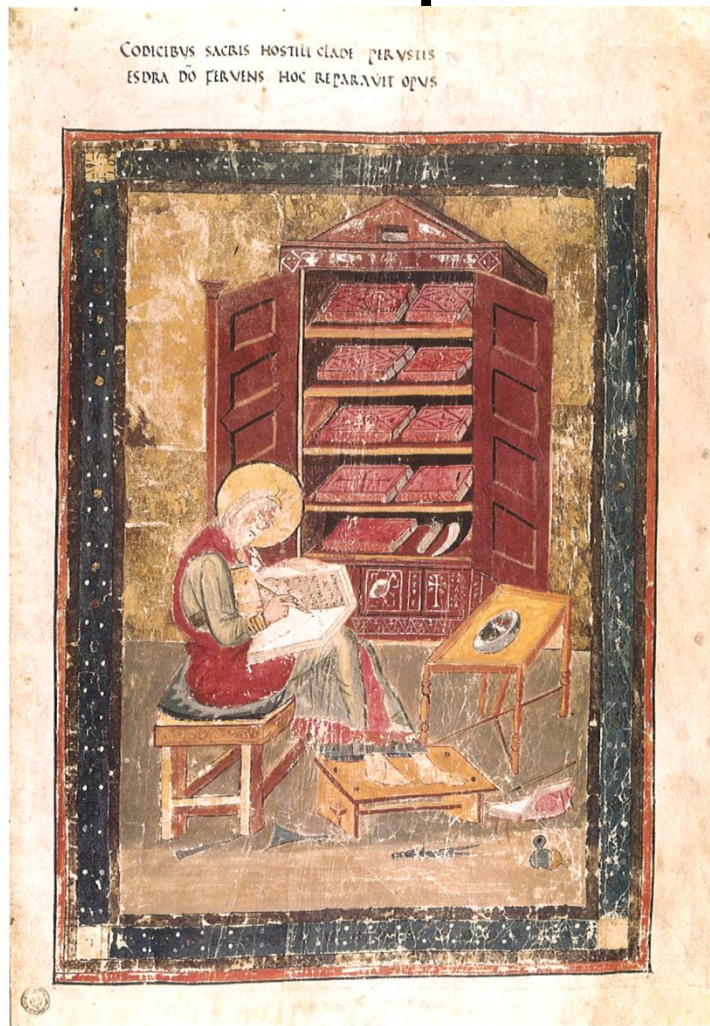 CODICIBVS SACRIS HOSTILI CLADE PERVSTIS
ESDRA D̄O FERVENS HOC REPARAVIT OPVS